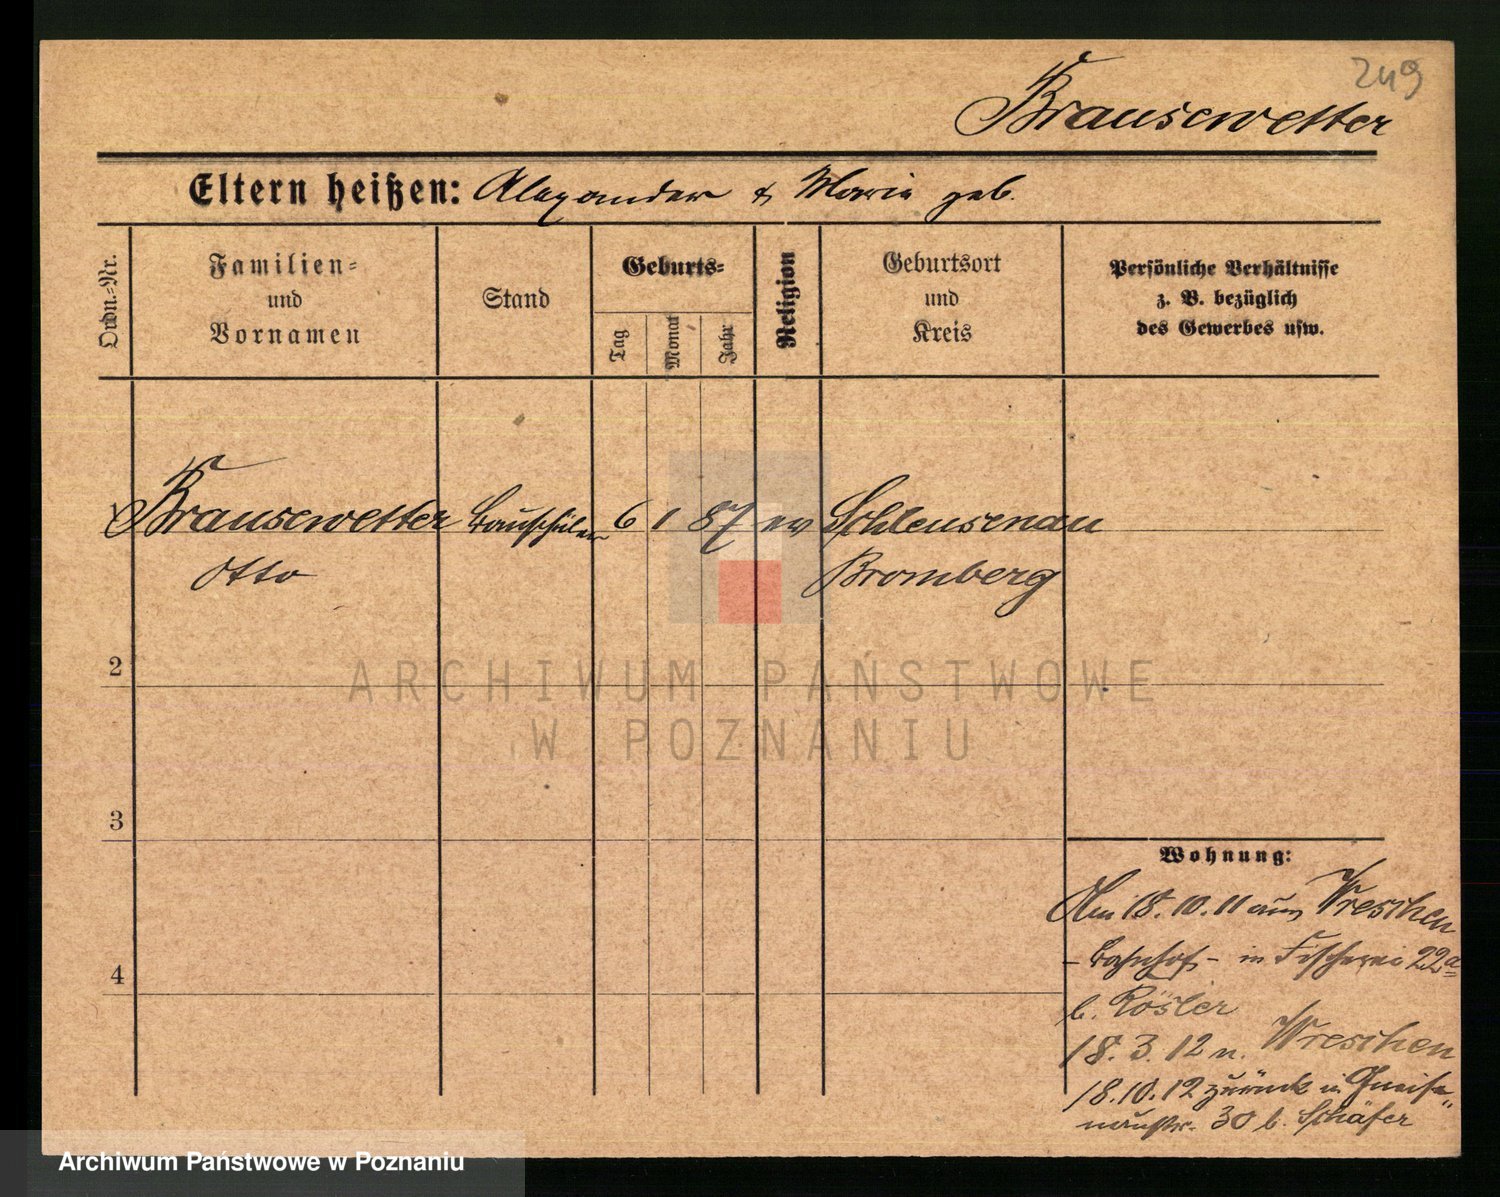 249
Brausewetter
Eltern heißen: Alexander & Marie geb.
Ordn.-Nr.
Familien-
und
Vornamen
Stand
Geburts-
Tag
Monat
Jahr
Religion
Geburtsort
und
Kreis
Persönliche Verhältnisse
z. B. bezüglich
des Gewerbes usw.
Brausewetter Bauschüler 6 1 87 ev Schleusenau
Otto Bromberg
2
3
4
Wohnung:
Am 18.10.11 aus Wreschen
- Bahnhof - in Fischerei 22a
b. Rösler
18.3.12 n. Wreschen
18.10.12 zurück in Gneise„
naustr. 30 b. Schäfer
ARCHIWUM PAŃSTWOWE
W POZNANIU
Archiwum Państwowe w Poznaniu